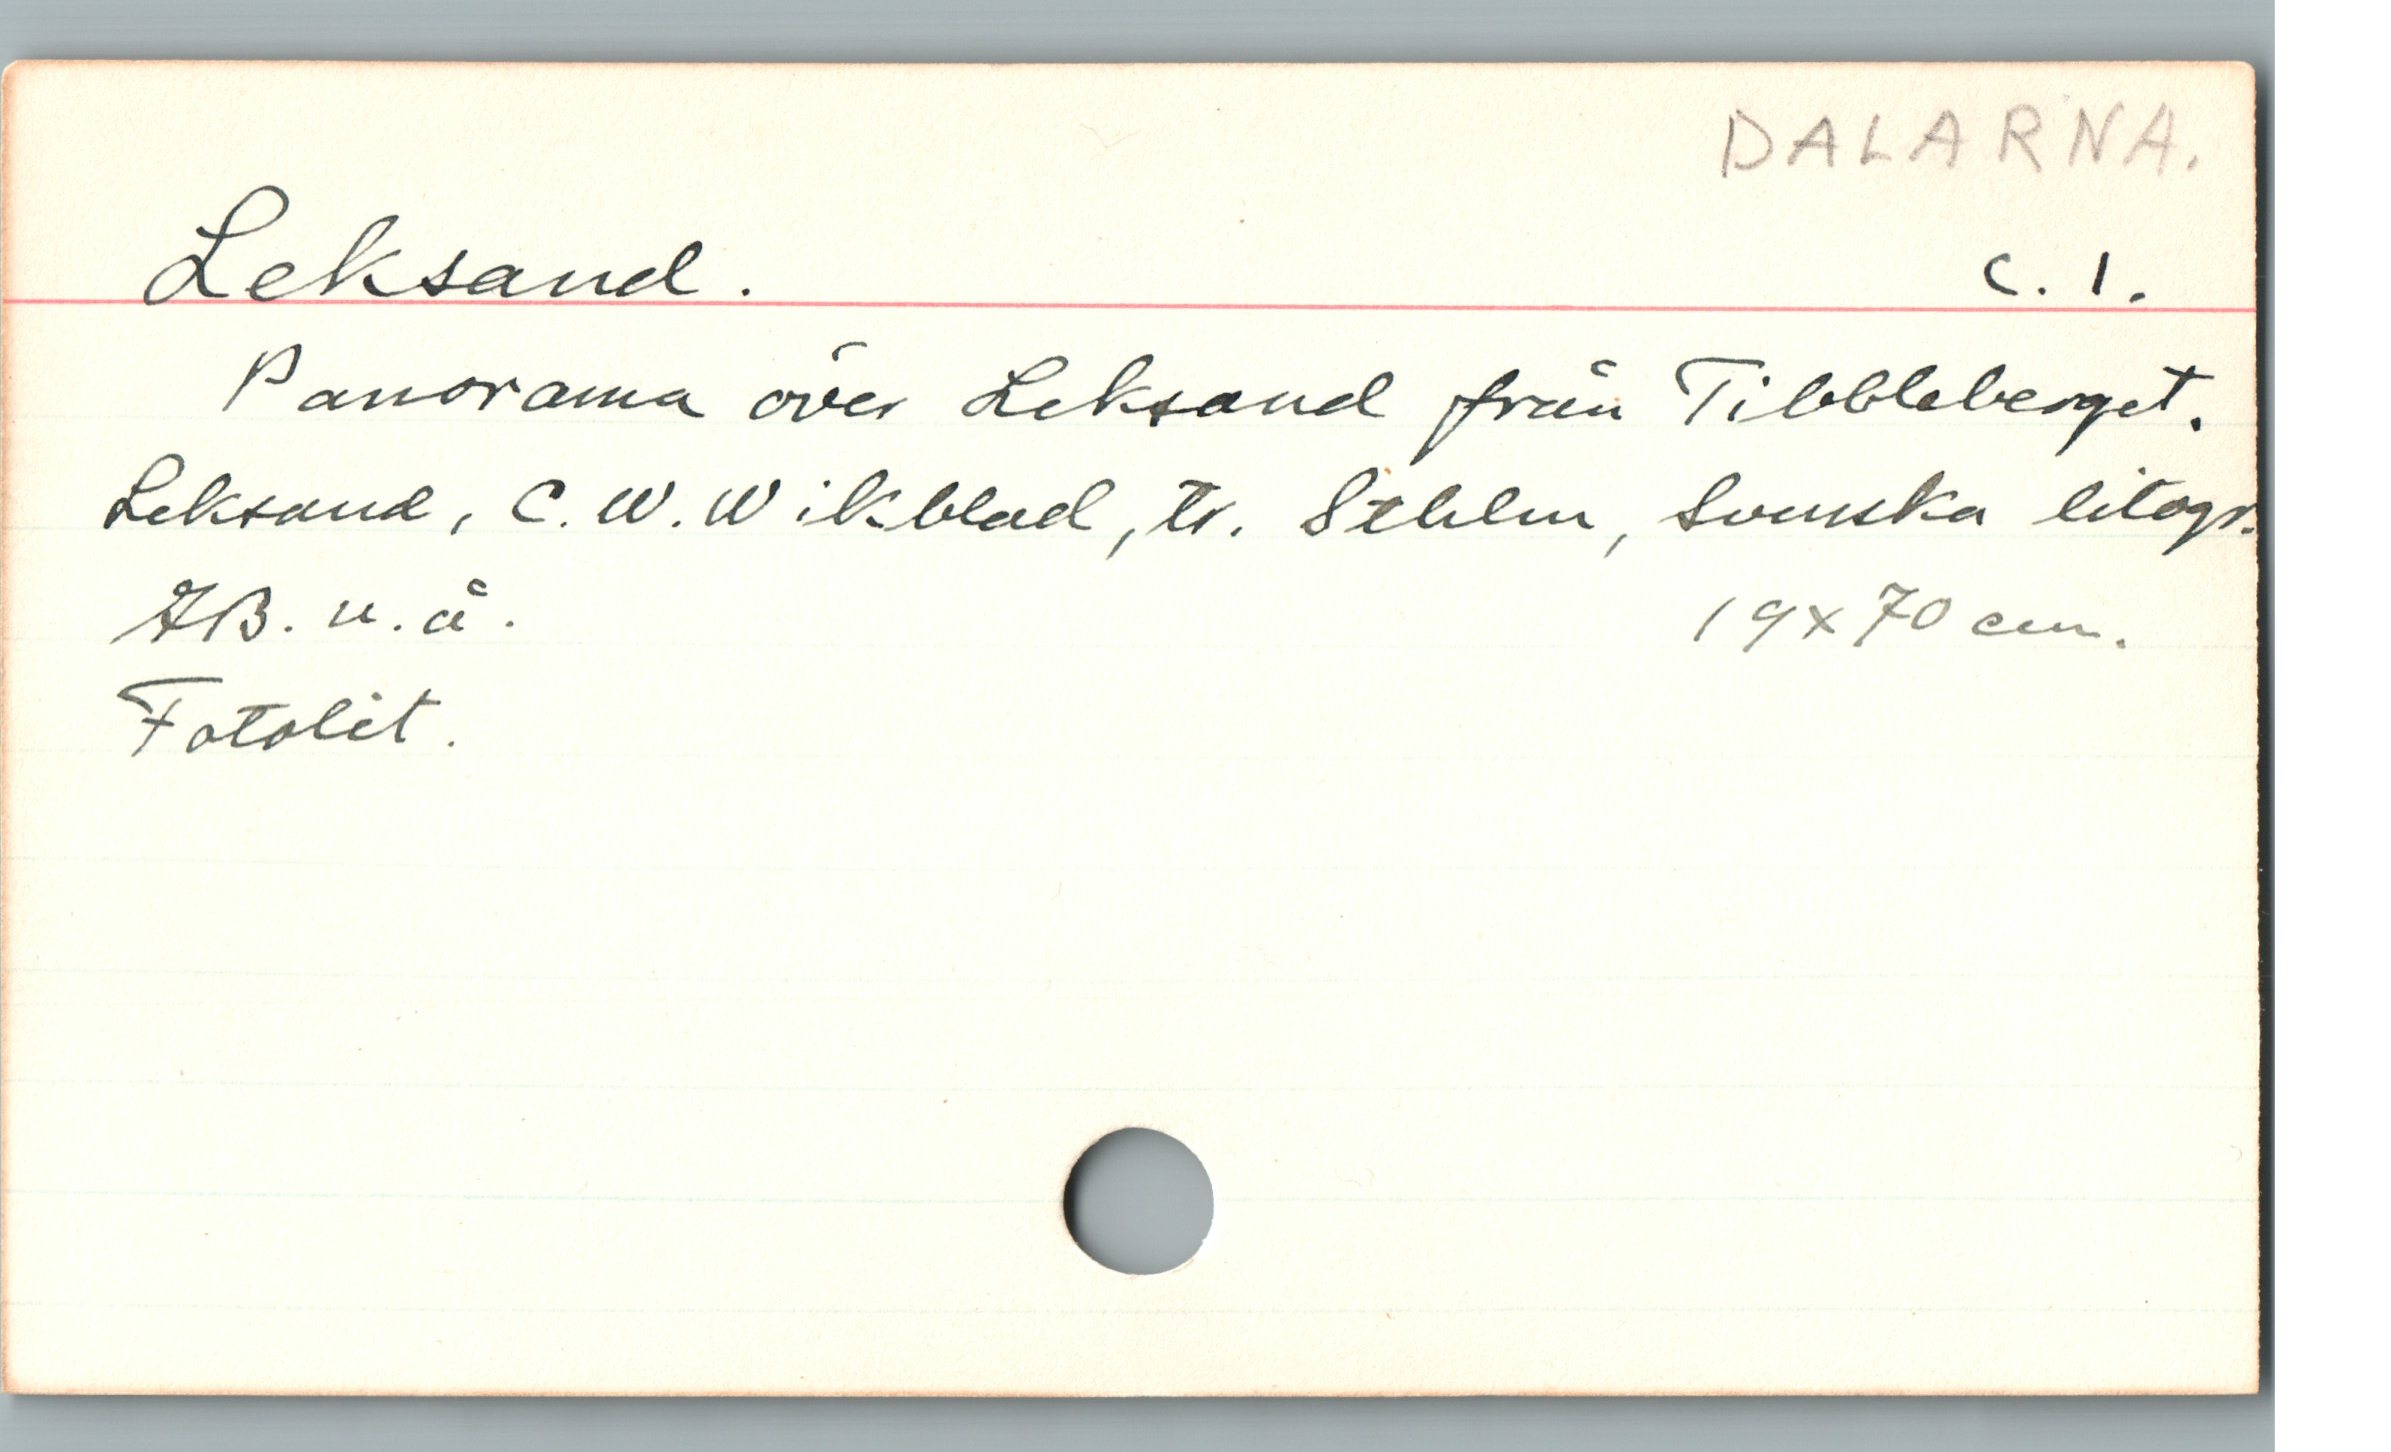 DALARNA.
Leksand. C. 1.
Panorama över Leksand från Tibbleberget.
Leksand, C. W. Wikblad, tr. Sthlm, Svenska litogr.
AB. u. å.
19x70 cm.
Fotolit.